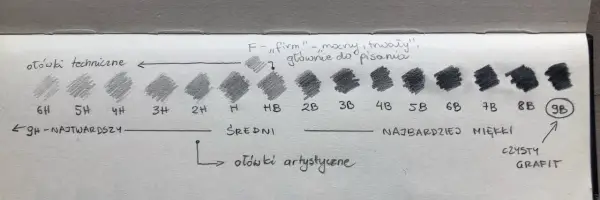 F - „firm" - „mocny, trwały",
głównie do pisania
ołówki techniczne
6H 5H 4H 3H 2H H HB 2B 3B 4B 5B 6B 7B 8B 9B
9H - NAJTWARDSZY ŚREDNI NAJBARDZIEJ MIĘKKI
ołówki artystyczne
CZYSTY
GRAFIT